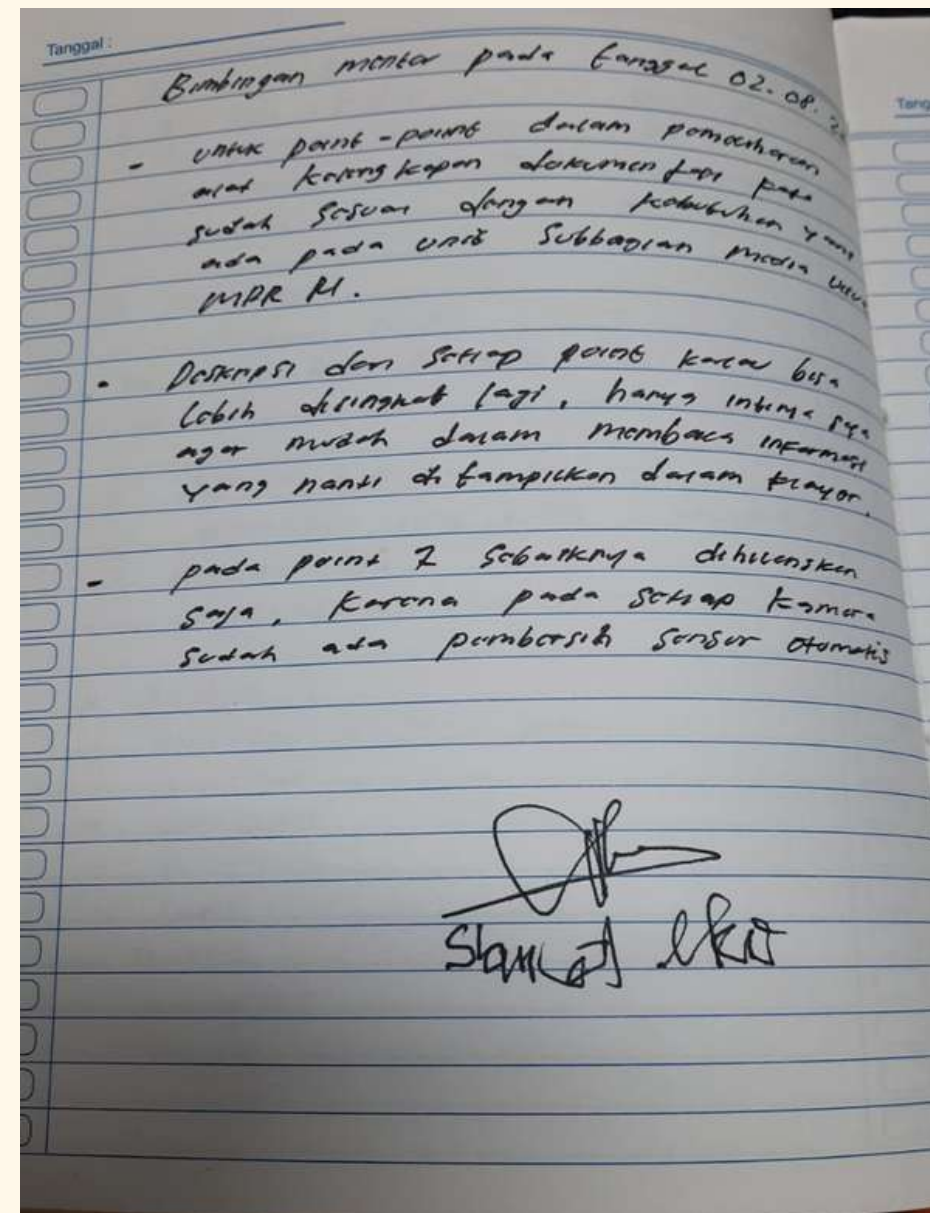 Tanggal :
Bimbingan mentor pada tanggal 02. 08.
- untuk point-point dalam pemeliharaan
alat kelengkapan dokumentasi pada
sudah sesuai dengan kebutuhan yang
ada pada unit Subbagian Media
MPR RI.
- Deskripsi dari setiap point kalau bisa
lebih disingkat lagi, hanya intinya saja
agar mudah dalam membaca informasi
yang nanti di tampilkan dalam
- pada point 7 sebaiknya dihilangkan
saja, karena pada setiap kamera
sudah ada pembersih sensor otomatis
Slamet eko
Tang